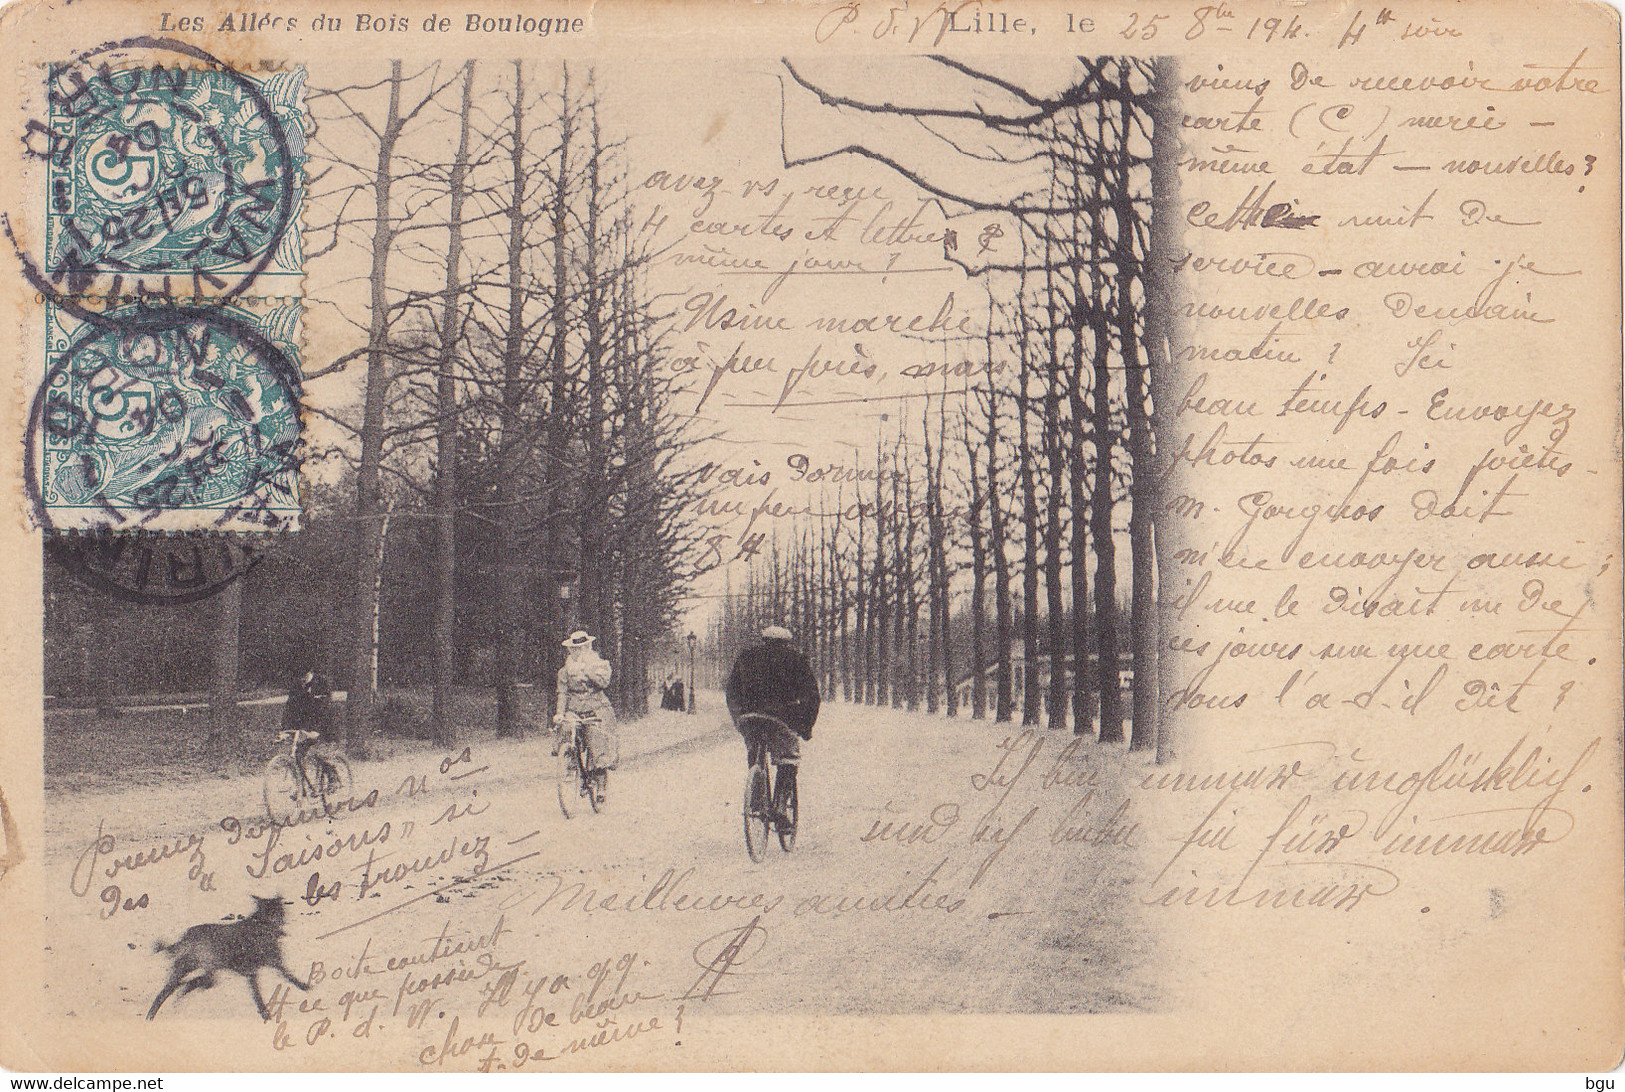 Les Allées du Bois de Boulogne
P. d. W Lille, le 25 8bre 194. 4h soir
viens de recevoir votre
carte (C) merci —
même état — nouvelles ?
cette nuit de
service — aurai-je
nouvelles demain
matin ? Ici
beau temps - Envoyez
photos une fois prêtes -
M. Gorgnos doit
m'en envoyer aussi ;
il me le disait un de
ces jours sur une carte.
vous l'a-t-il dit ?
avez-vs reçu
4 cartes et lettre
même jour ?
Usine marche
à peu près, mais
vais dormir
un peu avant
8 h
Ich bin immer unglücklich.
und ich für immer
immer .
Prenez derniers nos
des "Saisons" si
les trouvez —
Meilleures amitiés —
Boite contient
et ce que possède
le P. d. W. Il y a qq.
chose de beau
et de même ?
POSTES
5
WAVRIN
NORD
25
04
POSTES
5
WAVRIN
NORD
25
04
bgu